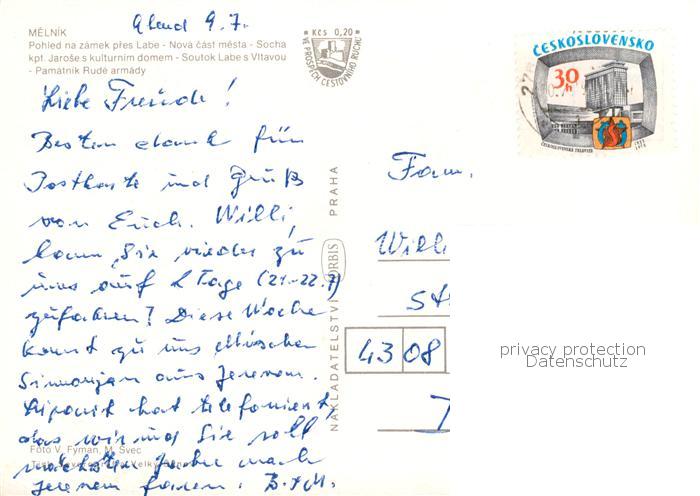 Abend 9.7.
MĚLNÍK
Pohled na zámek přes Labe - Nová část města - Socha
kpt. Jaroše s kulturním domem - Soutok Labe s Vltavou
- Památník Rudé armády
Kčs 0,20
VE PROSPĚCH CESTOVNÍHO RUCHU
ČESKOSLOVENSKO
30 h
ČESKOSLOVENSKÁ TELEVIZE
Liebe Freunde!
Besten dank für
Postkarte und Gruß
von Euch. Willi,
kann Sie wieder zu
uns auf 2 Tage (21.-22.7)
zufahren? Diese Woche
kommt zu uns
aus Jerewan.
hat telefoniert,
das wir und Sie soll
nächsten Jahr nach
Jerewan faren.
Foto V. Fyman, M. Švec
NAKLADATELSTVÍ ORBIS PRAHA
Fam.
Willi
St
43 08
privacy protection
Datenschutz